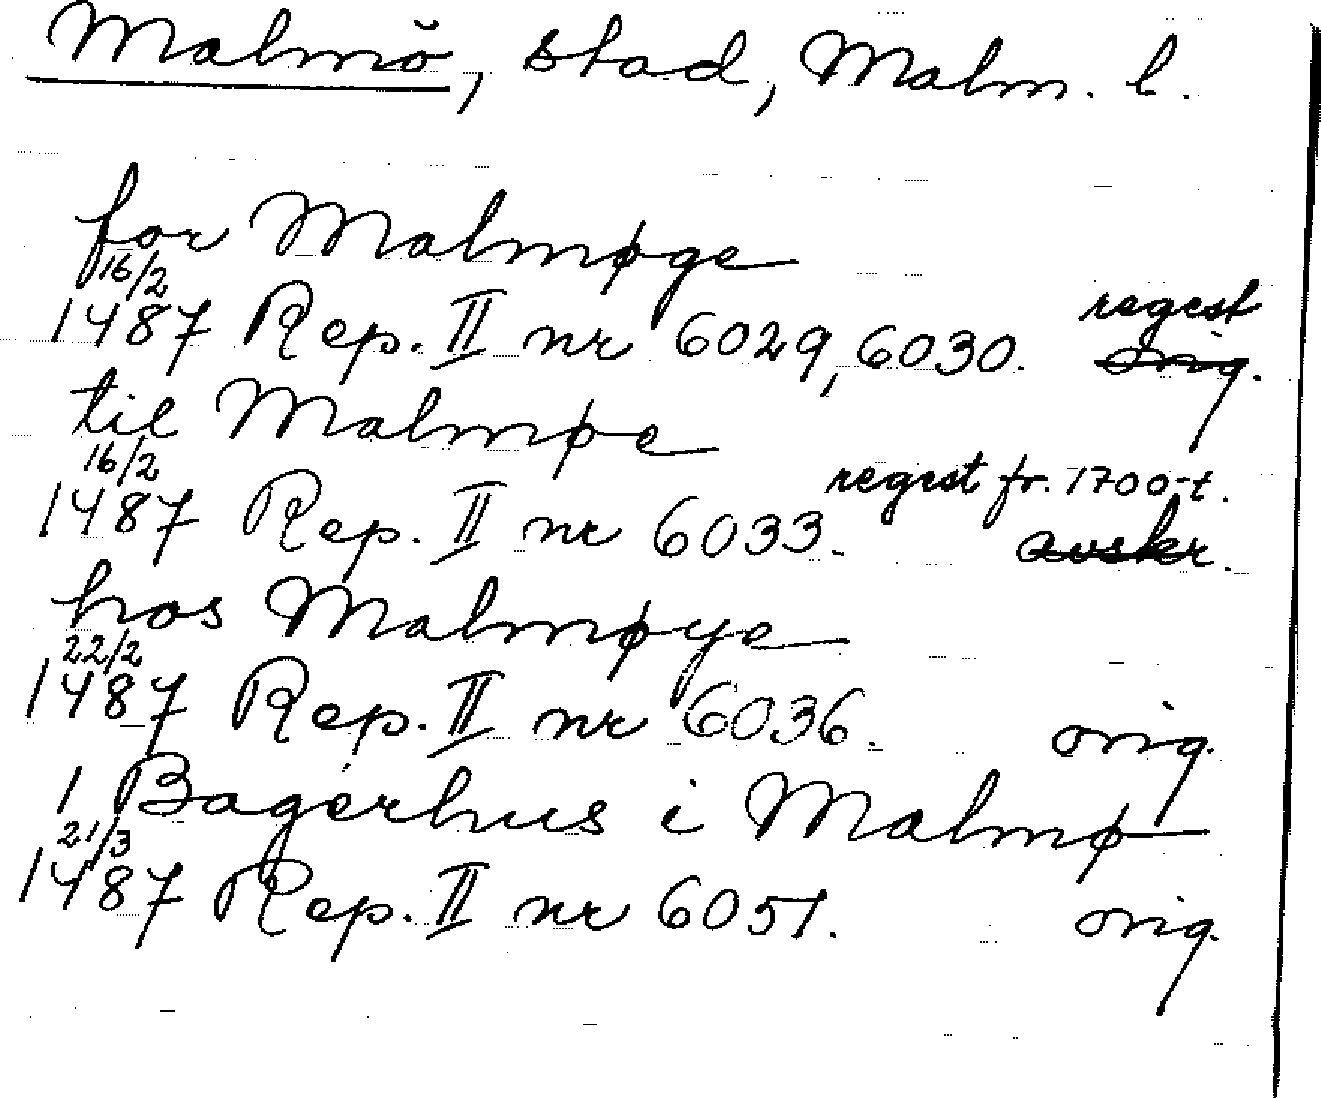 Malmö, stad, Malm. l.
for Malmøge
16/2 regest
1487 Rep. II nr 6029, 6030. orig.
til Malmøe
16/2 regest fr. 1700-t.
1487 Rep. II nr 6033. avskr.
hos Malmøye
22/2
1487 Rep. II nr 6036. orig.
1 Bagerhus i Malmø
21/3
1487 Rep. II nr 6051. orig.